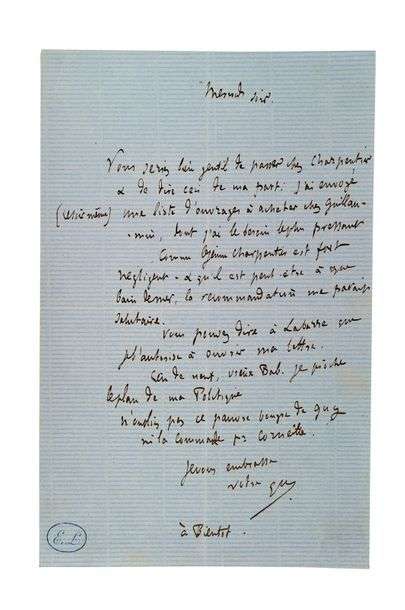 Mercredi
soir.
Vous seriez bien gentil de passer chez Charpentier
& de dire ceci de ma part : j'ai envoyé
(ce soir même) une liste d'ouvrages à acheter chez Guillau-
-min, dont j'ai le besoin le plus pressant
Comme le jeune Charpentier est fort
négligent - & qu'il est peut-être à
la recommandation me paraît
salutaire.
Vous pouvez dire à Laporte que
je l'autorise à ouvrir ma lettre.
de neuf, vieux Bab. je pioche
le plan de ma Politique
N'oubliez pas ce pauvre bougre de Guy
ni la commande
Je vous embrasse
votre
à Bientot.
E.L.